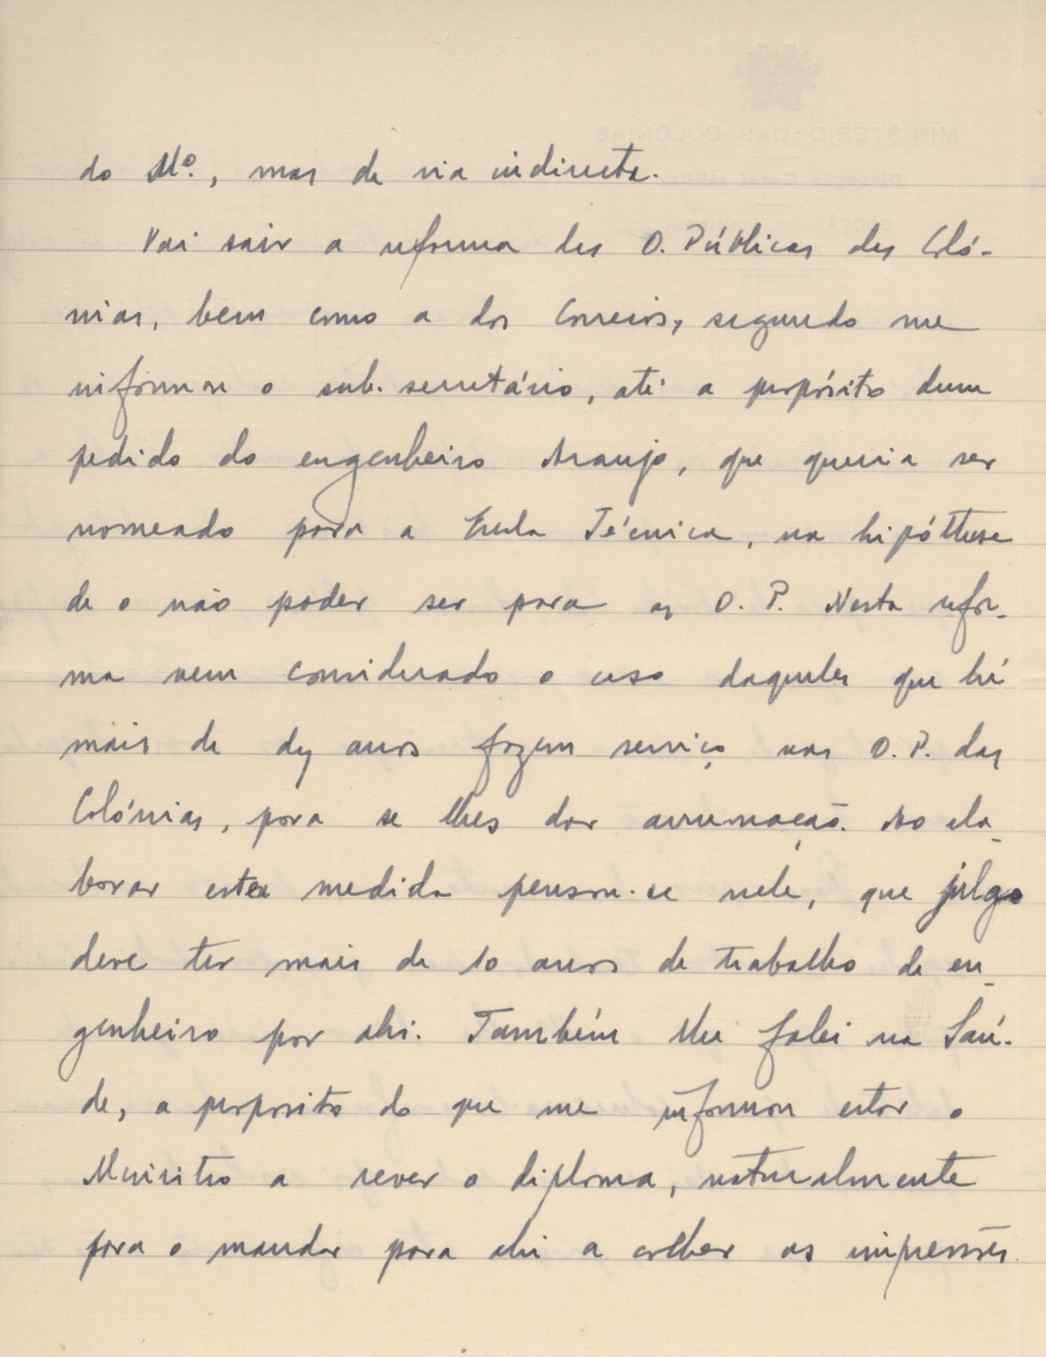 do Mº., mas de via indirecta.
Vai sair a reforma das O. Públicas das Coló-
nias, bem como a dos Correios, segundo me
informou o sub-secretário, até a propósito dum
pedido do engenheiro Araujo, que queria ser
nomeado para a Escola Técnica, na hipóthese
de o não poder ser para as O. P. Nesta refor-
ma vem considerado o caso daqueles que há
mais de dez anos fazem serviço nas O. P. das
Colónias, para se lhes dar arrumação. Ao ela-
borar esta medida pensou-se nele, que julgo
deve ter mais de 10 anos de trabalho de en-
genheiro por ahi. Também lhe falei na Saú-
de, a proposito do que me informou estar o
Ministro a rever o diploma, naturalmente
para o mandar para ahi a colher as impressões